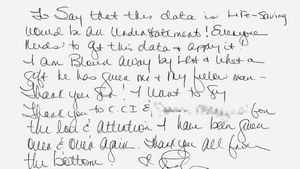 To Say that this data is Life-Saving
would be an Understatement! Everyone
needs to get this data & apply it.
I am Blown Away by LRH & what a
gift he has given me & my fellow man -
Thank you Sir! I want to Say
Thank you to C.C.I &, for
the love & Attention I have been given
Over & Over Again. Thank you all from
the bottom